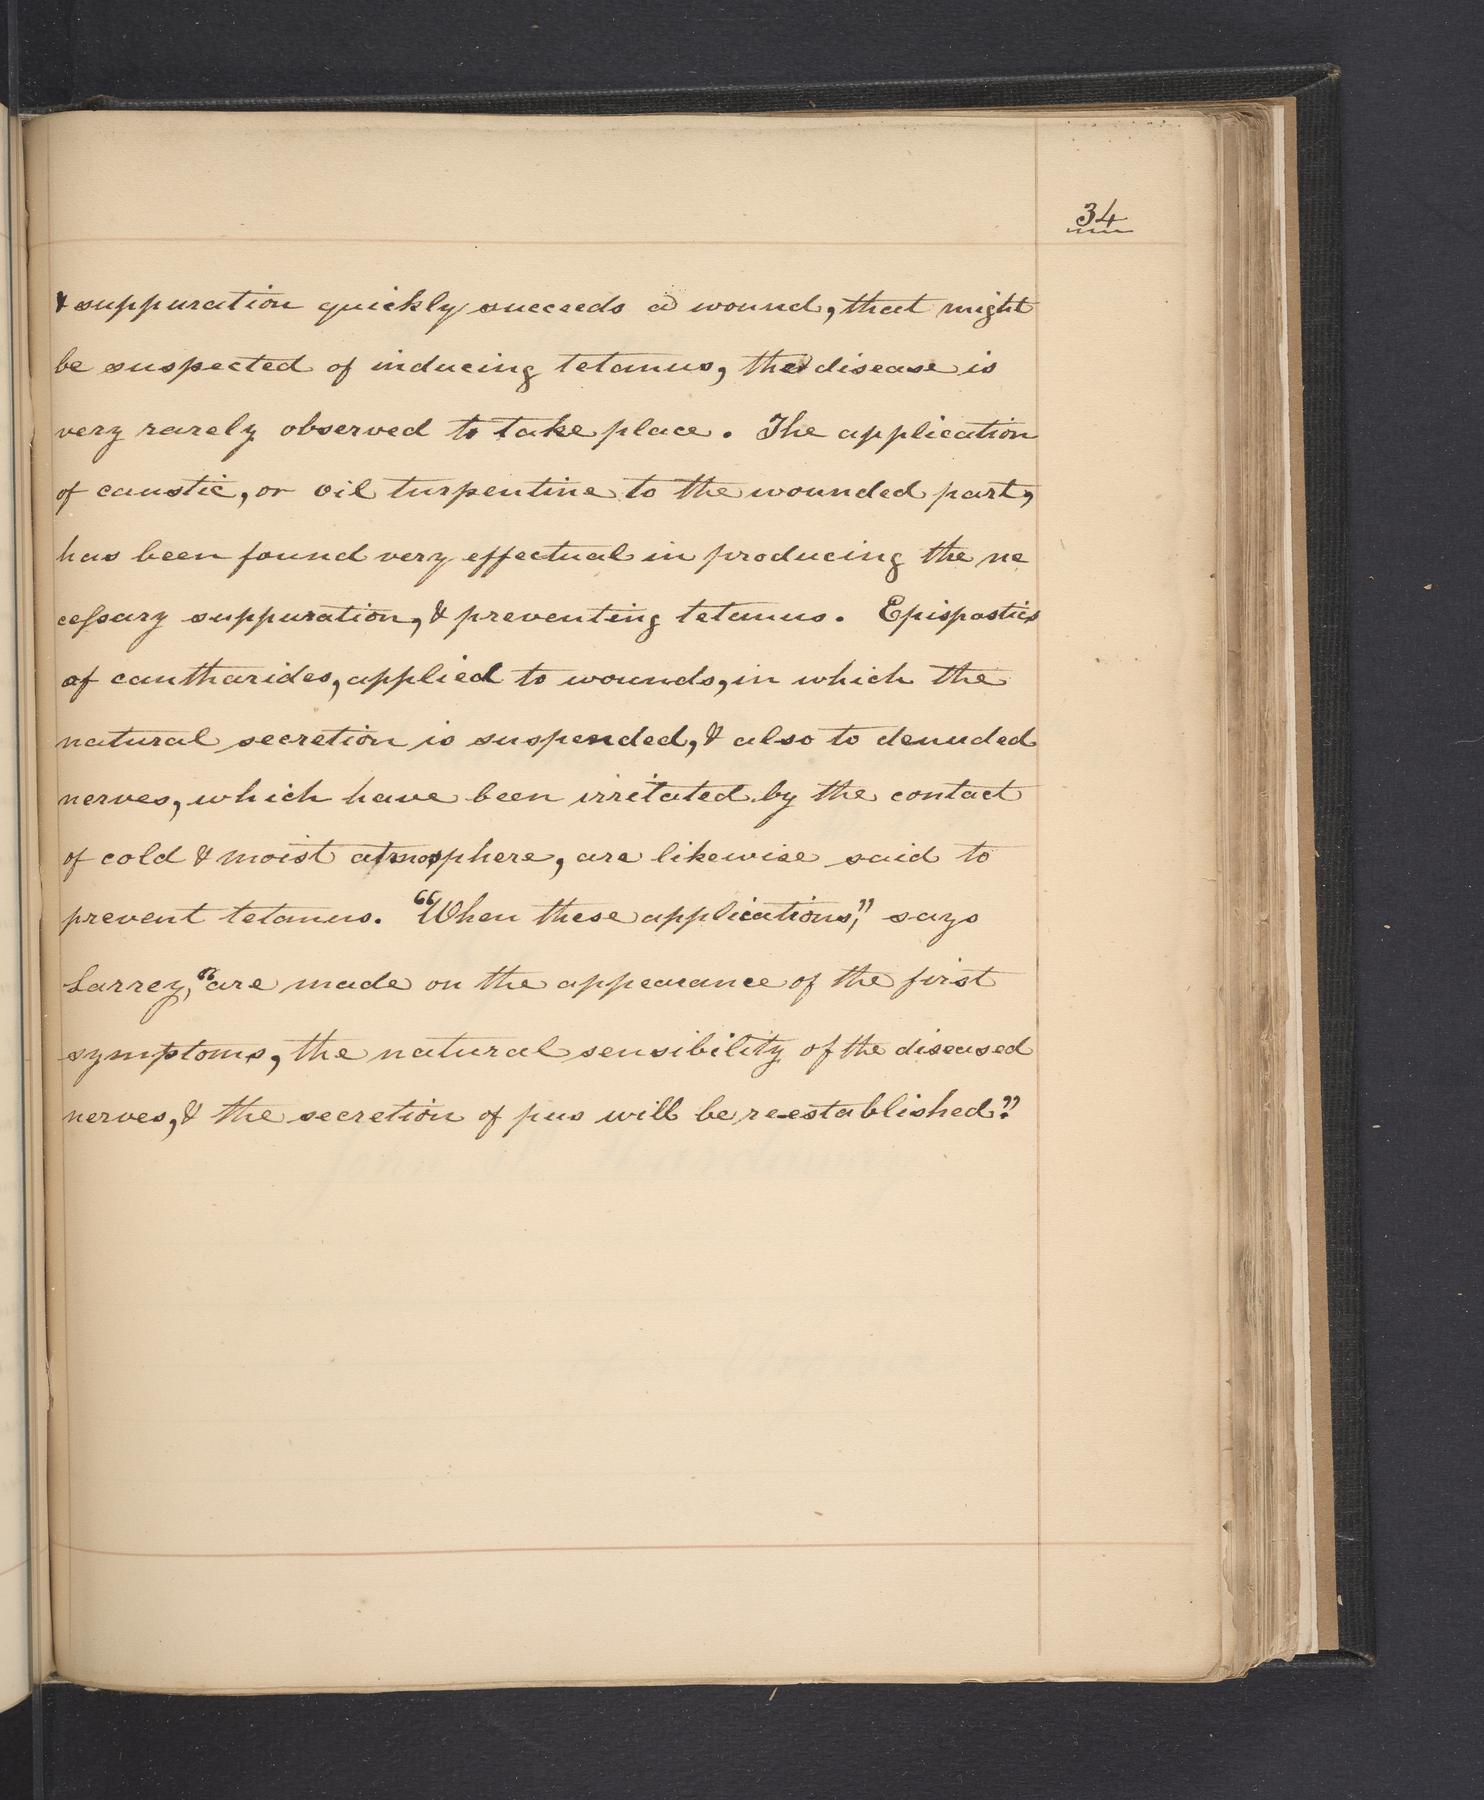 34
& suppuration quickly succeeds a wound, that might
be suspected of inducing tetanus, the disease is
very rarely observed to take place. The application
of caustic, or oil turpentine to the wounded part,
has been found very effectual in producing the ne
cessary suppuration, & preventing tetanus. Epispastics
of cantharides, applied to wounds, in which the
natural secretion is suspended, & also to denuded
nerves, which have been irritated by the contact
of cold & moist atmosphere, are likewise said to
prevent tetanus. "When these applications," says
Larrey, "are made on the appearance of the first
symptoms, the natural sensibility of the diseased
nerves, & the secretion of pus will be reestablished."